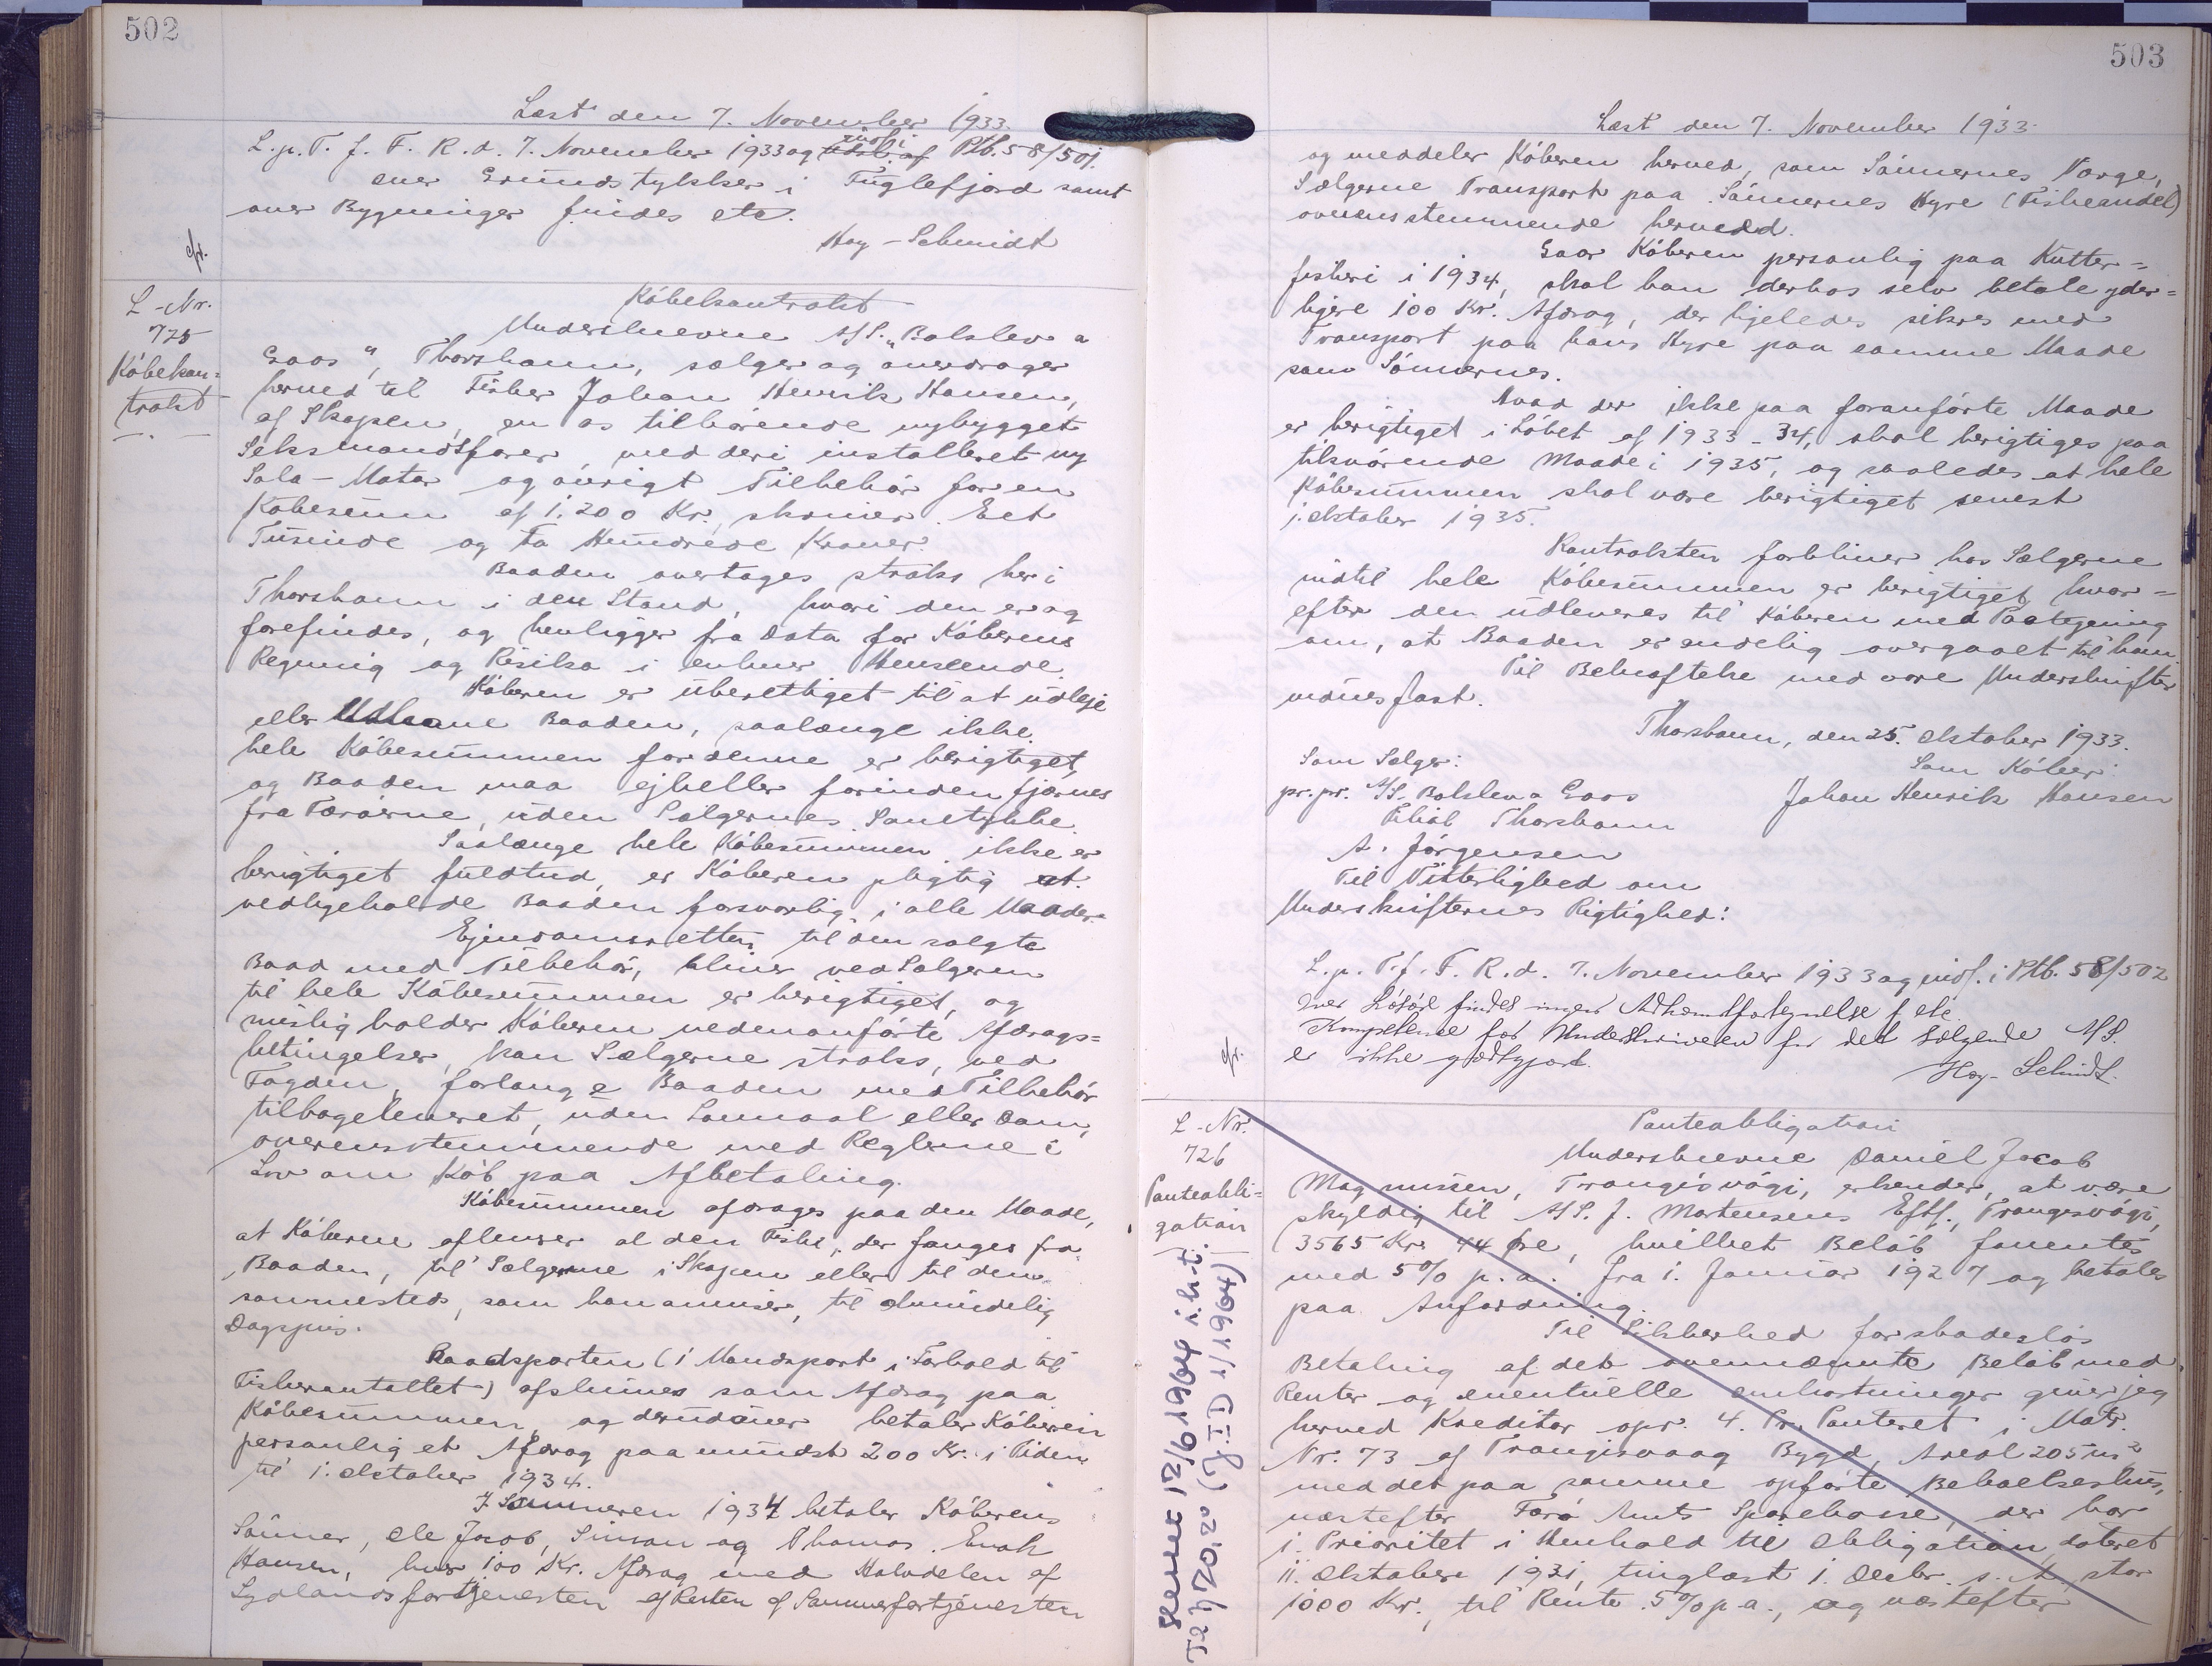 502
Læst den 7. November 1933.
L. p. T. f. F. R. d. 7. November 1933 og indf. i Ptb. 58/501.
over Grundstykker i Fuglefjord samt
over Bygninger findes etc.
Høy-Schmidt
cfr.
L-Nr.
725
Købekon=
trakt
Købekontrakt
Underskrevne A/S. "Balslev a
Goos", Thorshavn, sælger og overdrager
herved til Fisker Johan Henrik Hansen,
af Skopen, en os tilhørende nybygget
Seksmandsfarer, med deri installeret ny
Sola-Motor og øvrigt Tilbehør for en
Købesum af 1.200 Kr., skriver Eet
Tusinde og To Hundrede Kroner.
Baaden overtages straks her i
Thorshavn i den Stand, hvori den er og
forefindes, og henligger fra Dato for Køberens
Regning og Risiko i enhver Henseende.
Køberen er uberettiget til at udleje
eller Udlaane Baaden, saalænge ikke
hele Købesummen for denne er berigtiget,
og Baaden maa ejheller forinden fjernes
fra Færøerne, uden Sælgernes Samtykke.
Saalænge hele Købesummen ikke er
berigtiget fuldtud, er Køberen pligtig at
vedligeholde Baaden forsvarlig i alle Maader.
Ejendomsretten til den solgte
Baad med Tilbehør, bliver ved Sælgeren
til hele Købesummen er berigtiget, og
misligholder Køberen nedenanførte Afdrags=
betingelser, kan Sælgerne straks, ved
Fogden, forlange Baaden med Tilbehør
tilbageleveret, uden Lovmaal eller Dom,
overensstemmende med Reglerne i
Lov om Køb paa Afbetaling.
Købesummen afdrages paa den Maade,
at Køberen afleverer al den Fisk, der fanges fra
Baaden, til Sælgerne i Skopen eller til den
sammesteds, som han anviser, til almindelig
Dagspris.
Baadsparten (1 Mandspart i Forhold til
Fiskerantallet) afskrives som Afdrag paa
Købesummen, og derudover betaler Køberen
personlig et Afdrag paa mindst 200 Kr. i Tiden
til 1. Oktober 1934.
I Sommeren 1934 betaler Køberens
Sønner, Ole Jacob, Simon og Thomas Enok
Hansen, hver 100 Kr. Afdrag med Halvdelen af
Sydlandsfortjenesten af Resten af Sommerfortjenesten
503
Læst den 7. November 1933.
og meddeler Køberen herved, som Sønnernes Værge,
Sælgerne Transport paa Sønnernes Hyre (Fiskeandel)
overensstemmende hermed.
Gaar Køberen personlig paa Kutter=
fiskeri i 1934, skal han derhos selv betale yder=
ligere 100 Kr. Afdrag, der ligeledes sikres med
Transport paa hans Hyre paa samme Maade
som Sønnernes.
Hvad der ikke paa foranførte Maade
er berigtiget i Løbet af 1933-34, skal berigtiges paa
tilsvarende Maade i 1935, og saaledes at hele
Købesummen skal være berigtiget senest
1. Oktober 1935.
Kontrakten forbliver hos Sælgerne
indtil hele Købesummen er berigtiget, hvor=
efter den udleveres til Køberen med Paategning
om, at Baaden er endelig overgaaet til ham.
Til Bekræftelse med vore Underskrifter
vidnesfast.
Thorshavn, den 25. Oktober 1933.
Som Sælger:
Som Køber:
pr. pr. A/S. Balslev a Goos
Johan Henrik Hansen
Filial Thorshavn
A. Jørgensen
Til Vitterlighed om
Underskrifternes Rigtighed:
L. p. T. f. F. R. d. 7. November 1933 og indf. i Ptb. 58/502
over Løsøre findes ingen Adkomstfortegnelse f etc.
Kompetence for Underskriveren for det sælgende A/S.
er ikke godtgjort.
Høy-Schmidt.
cfr.
L-Nr.
726
Panteobli=
gation
Panteobligation
Underskrevne Daniel Jacob
Magnussen, Trangisvági, erkender, at være
skyldig til A/S. J. Mortensens Eftf., Trangisvági,
3565 Kr. 44 Øre, hvilket Beløb forrentes
med 5% p. a. fra 1. Januar 1927 og betales
paa Anfordring.
Til Sikkerhed for skadesløs
Betaling af det ovennævnte Beløb med
Renter og eventuelle Omkostninger giver jeg
herved Kreditor opr. 4. Pr. Panteret i Matr.
Nr. 73 af Trangisvaag Bygd, Areal 205 m²
med det paa samme opførte Beboelseshus,
næstefter Færø Amts Sparekasse, der har
1. Prioritet i Henhold til Obligation dateret
11. Oktober 1931, tinglæst 1. Decbr. s. A., stor
1000 Kr., til Rente 5% p. a., og næstefter
1964 i.h.t.